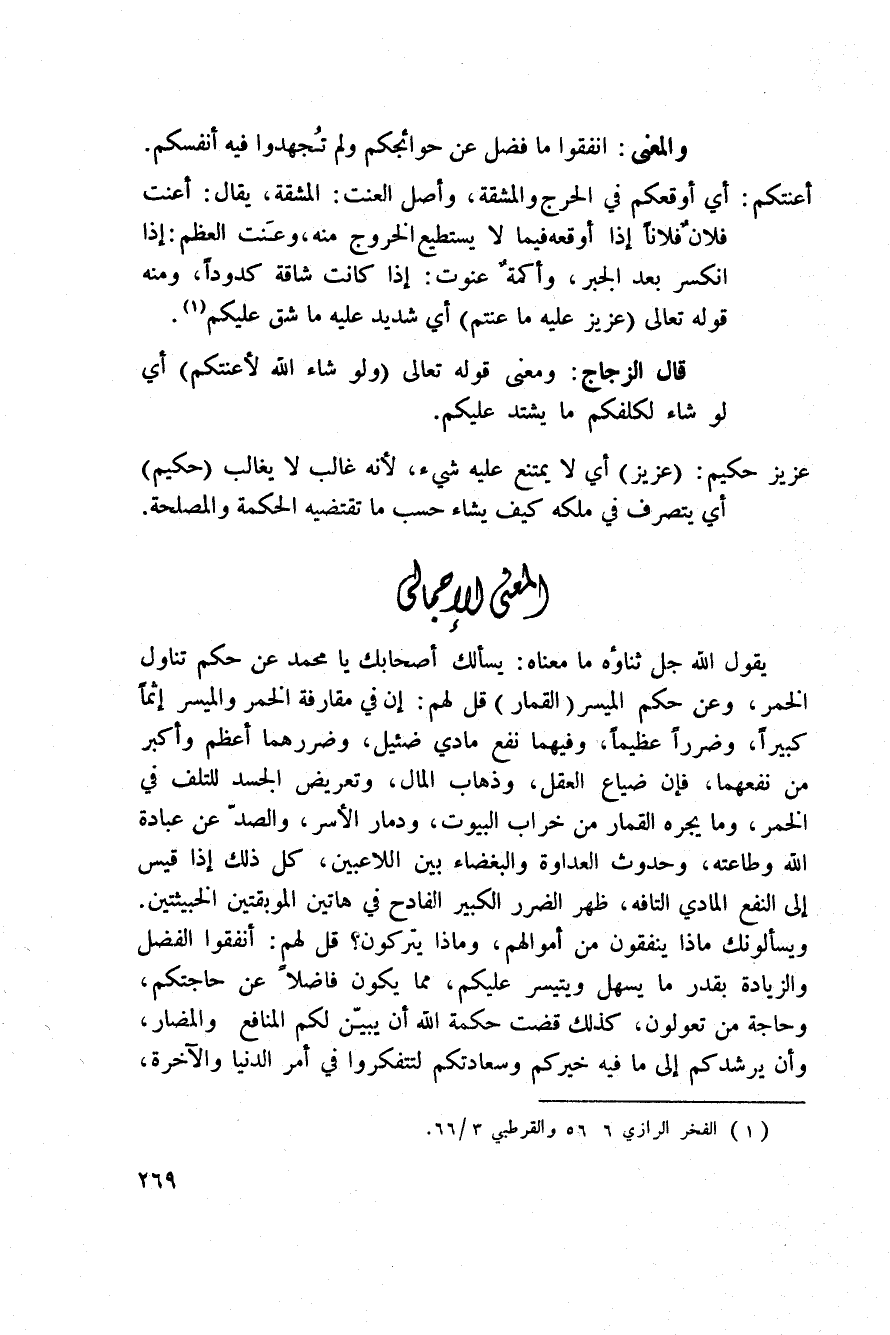 والمعنى : انفقوا ما فضل عن حوائجكم ولم تُجهدوا فيه أنفسكم.
أعنتكم : أي أوقعكم في الحرج والمشقة، وأصل العنت : المشقة، يقال : أعنت
فلانٌ فلاناً إذا أوقعه فيما لا يستطيع الخروج منه، وعَنت العظم : إذا
انكسر بعد الجبر ، وأكمةٌ عنوت : إذا كانت شاقة كدوداً، ومنه
قوله تعالى (عزيز عليه ما عنتم) أي شديد عليه ما شق عليكم(١) .
قال الزجاج : ومعنى قوله تعالى (ولو شاء الله لأعنتكم) أي
لو شاء لكلفكم ما يشتد عليكم.
عزيز حكيم : (عزيز) أي لا يمتنع عليه شيء، لأنه غالب لا يغالب (حكيم)
أي يتصرف في ملكه كيف يشاء حسب ما تقتضيه الحكمة والمصلحة.
المعنى الإجمالي
يقول الله جل ثناؤه ما معناه : يسألك أصحابك يا محمد عن حكم تناول
الخمر ، وعن حكم الميسر ( القمار ) قل لهم : إن في مقارفة الخمر والميسر إثماً
كبيراً، وضرراً عظيماً، وفيهما نفع مادي ضئيل، وضررهما أعظم وأكبر
من نفعهما، فإن ضياع العقل، وذهاب المال، وتعريض الجسد للتلف في
الخمر ، وما يجره القمار من خراب البيوت، ودمار الأسر ، والصدّ عن عبادة
الله وطاعته، وحدوث العداوة والبغضاء بين اللاعبين، كل ذلك إذا قيس
إلى النفع المادي التافه، ظهر الضرر الكبير الفادح في هاتين الموبقتين الخبيثتين.
ويسألونك ماذا ينفقون من أموالهم، وماذا يتركون؟ قل لهم : أنفقوا الفضل
والزيادة بقدر ما يسهل ويتيسر عليكم، مما يكون فاضلاً عن حاجتكم،
وحاجة من تعولون، كذلك قضت حكمة الله أن يبيّن لكم المنافع والمضار ،
وأن يرشدكم إلى ما فيه خيركم وسعادتكم لتتفكروا في أمر الدنيا والآخرة،
( ١ ) الفخر الرازي ٦ ٥٦ والقرطبي ٦٦/٣.
٢٦٩